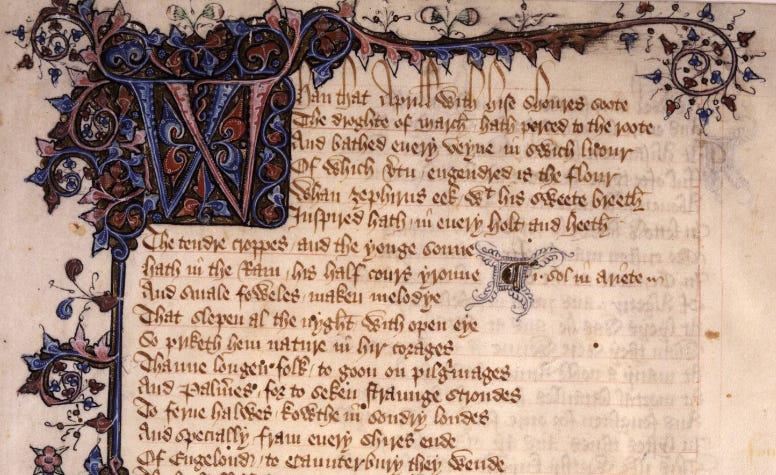 Whan that Aprill with hise shoures soote
The droghte of march hath perced to the roote
And bathed euery veyne in swich licour
Of which vtu engendred is the flour
Whan zephirus eek wt his sweete breeth
Inspired hath in euery holt and heeth
The tendre croppes and the yonge sonne
hath in the Ram his half cours yronne
.i. sol in ariete
And smale foweles maken melodye
That slepen al the nyght with open eye
So priketh hem nature in hir corages
Thanne longen folk to goon on pilgrimages
And Palmeres for to seken straunge strondes
To ferne halwes kowthe in sondry londes
And specially fram euery shires ende
Of Engelond to Caunterbury they wende